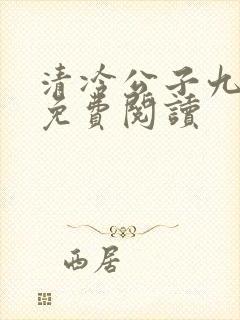 清冷公子九
免費閱讀
西居